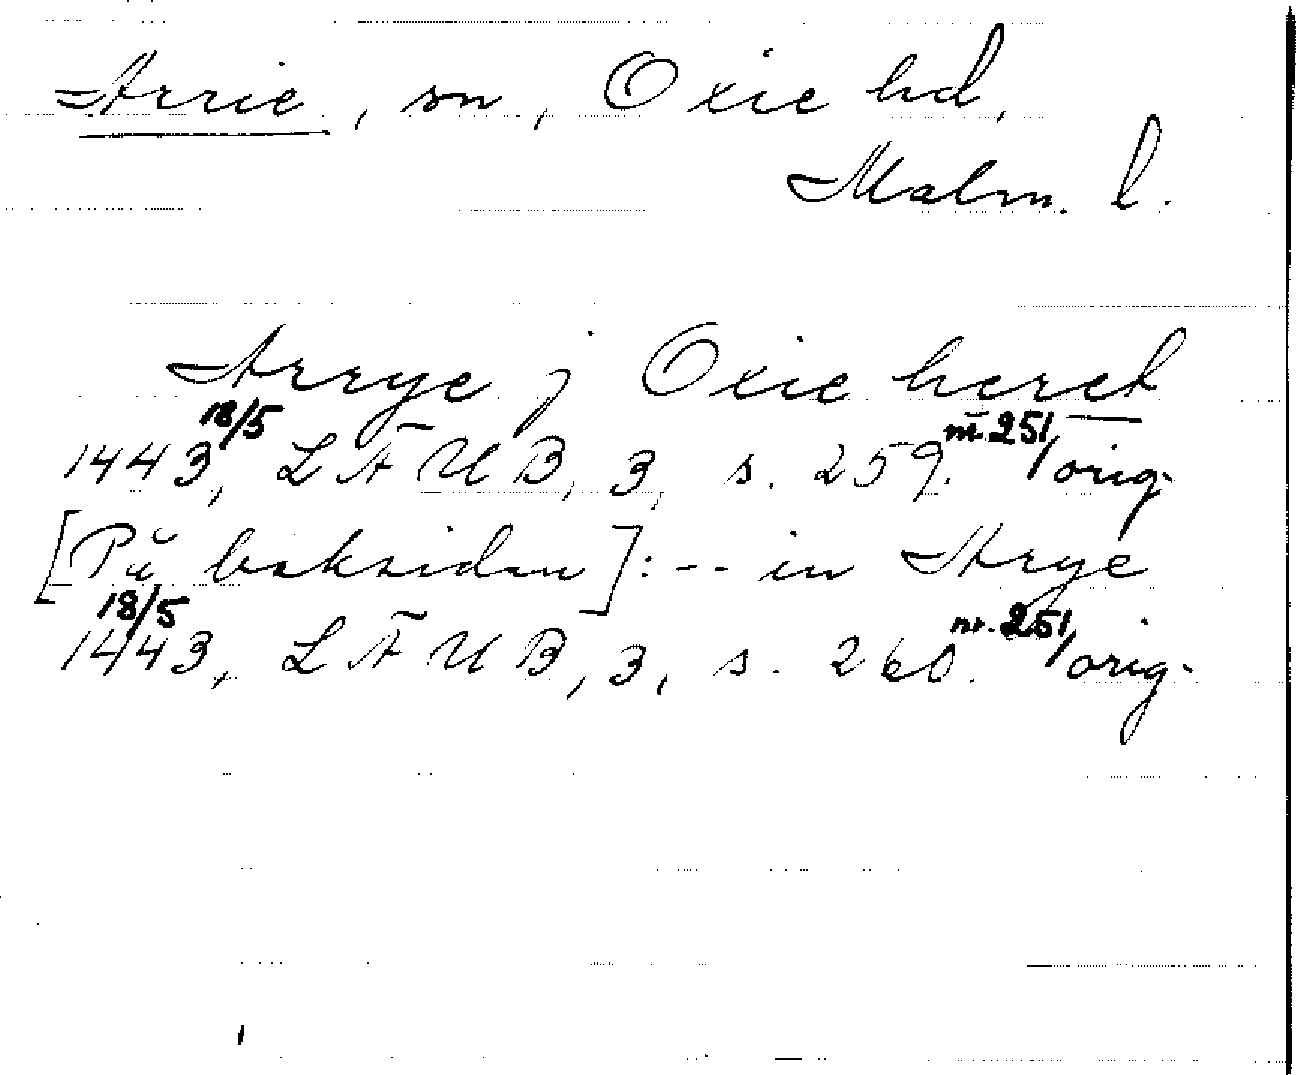 Arrie, sn, Oxie hd,
Malm. l.
Arrye j Oxie heret
18/5 nr 251/
1443, LÄUB, 3, s. 259. orig.
[På baksidan]: -- in Arye
18/5 nr. 251/
1443, LÄUB, 3, s. 260. orig.